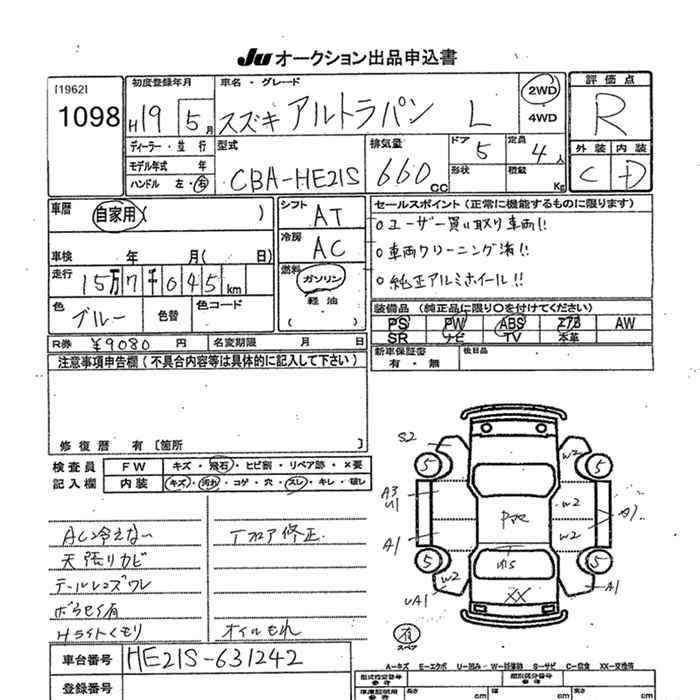 JU オークション出品申込書
[1962]
1098
初度登録年月
H19 5月
車名・グレード
スズキ アルトラパン L
2WD
4WD
評価点
R
外装 内装
C D
ディーラー・並行
モデル年式 年
ハンドル 左・右
型式
CBA-HE21S
排気量
660cc
ドア
5
形状
定員
4人
積載
Kg
車歴
自家用( )
車検 年 月( 日)
走行 15万7千045km
色 ブルー 色替 色コード
シフト AT
冷房 AC
燃料 ガソリン
軽油
( )
セールスポイント(正常に機能するものに限ります)
○ユーザー買い取り車両!!
○車両クリーニング済!!
○純正アルミホイール!!
装備品(純正品に限り○を付けてください)
PS PW ABS エアB AW
SR ナビ TV 本革
R券 ¥9080円 名変期限 月 日
新車保証書
有・無
後日品
注意事項申告欄(不具合内容等は具体的に記入して下さい)
修復歴 有[箇所 ]
検査員
記入欄
FW キズ・飛石・ヒビ割・リペア跡・×要
内装 キズ・汚れ・コゲ・穴・スレ・キレ・破し
AC冷えない
天張りカビ
テールレンズワレ
Hライトくもり
フロア修正
オイルもれ
S2
A3
U1
A1
UA1
W2
W2
W2
W2
W2
A1
A1
5
5
5
5
XX
スペア
A-キズ E-エクボ U-凹み W-補修跡 S-サビ C-腐食 XX-交換済
車台番号 HE21S-631242
登録番号
型式指定番号
参考
類別区分番号
参考
長さ cm
幅 cm
高さ cm